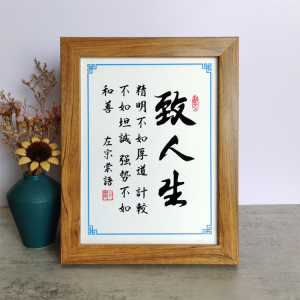 致人生
精明不如厚道 計較
不如坦誠 强勢不如
和善
左宗棠語